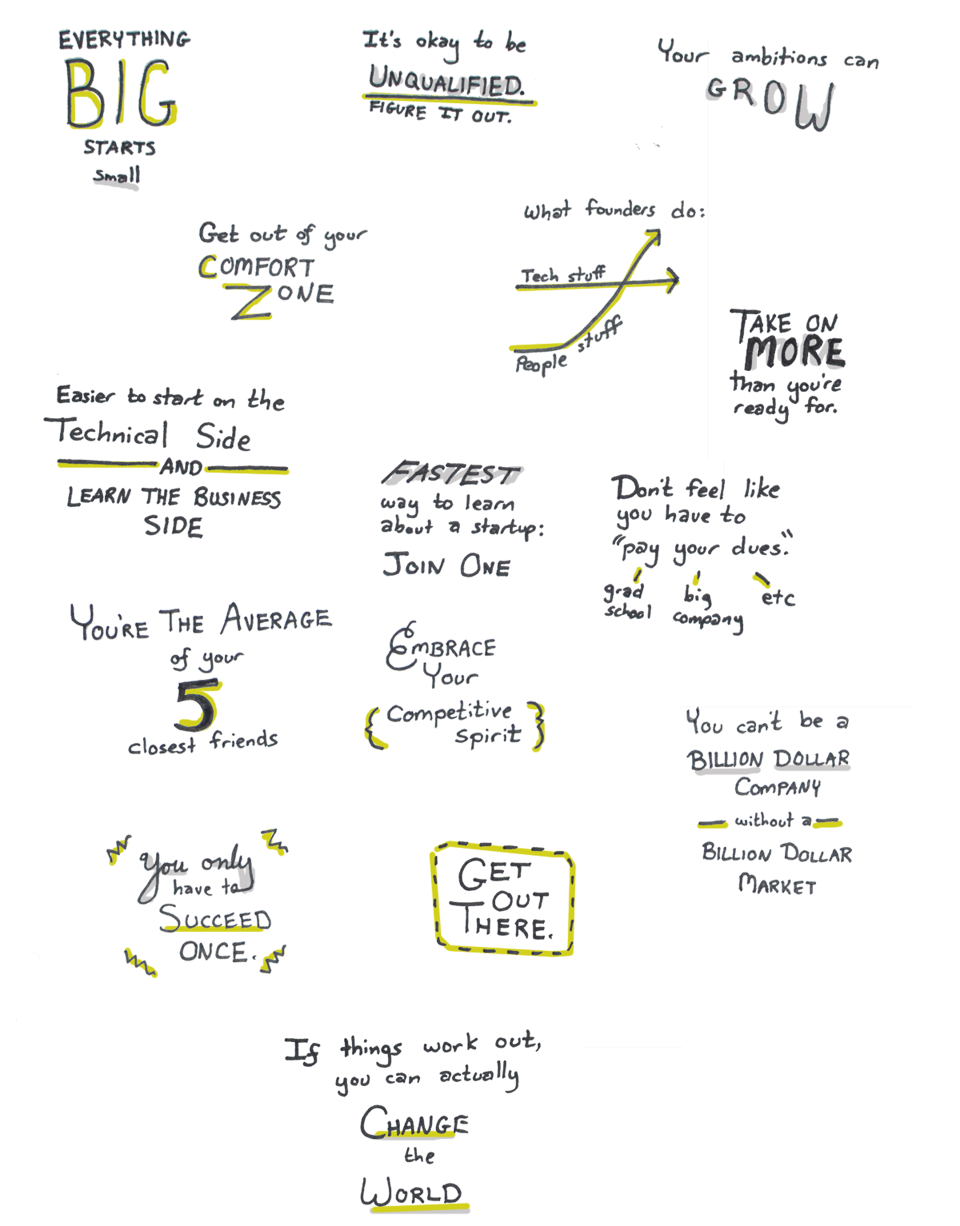 EVERYTHING
BIG
STARTS
small
It's okay to be
UNQUALIFIED.
FIGURE IT OUT.
Your ambitions can
GROW
Get out of your
COMFORT
ZONE
What founders do:
Tech stuff
People stuff
TAKE ON
MORE
than you're
ready for.
Easier to start on the
Technical Side
AND
LEARN THE BUSINESS
SIDE
FASTEST
way to learn
about a startup:
JOIN ONE
Don't feel like
you have to
"pay your dues."
grad
school
big
company
etc
YOU'RE THE AVERAGE
of your
5
closest friends
EMBRACE
Your
{ Competitive
Spirit }
You can't be a
BILLION DOLLAR
COMPANY
without a
BILLION DOLLAR
MARKET
You only
have to
SUCCEED
ONCE.
GET
OUT
THERE.
If things work out,
you can actually
CHANGE
the
WORLD